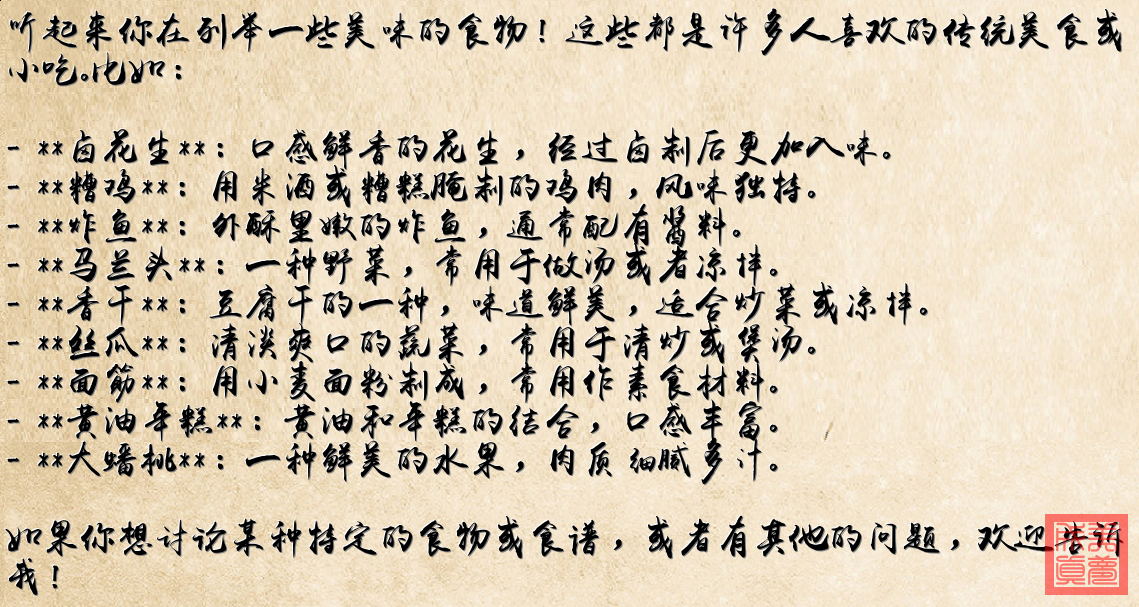 听起来你在列举一些美味的食物！这些都是许多人喜欢的传统美食或
小吃。比如：
- **卤花生**：口感鲜香的花生，经过卤制后更加入味。
- **糟鸡**：用米酒或糟糕腌制的鸡肉，风味独特。
- **炸鱼**：外酥里嫩的炸鱼，通常配有酱料。
- **马兰头**：一种野菜，常用于做汤或者凉拌。
- **香干**：豆腐干的一种，味道鲜美，适合炒菜或凉拌。
- **丝瓜**：清淡爽口的蔬菜，常用于清炒或煲汤。
- **面筋**：用小麦面粉制成，常用作素食材料。
- **黄油年糕**：黄油和年糕的结合，口感丰富。
- **大蟠桃**：一种鲜美的水果，肉质细腻多汁。
如果你想讨论某种特定的食物或食谱，或者有其他的问题，欢迎告诉
我！